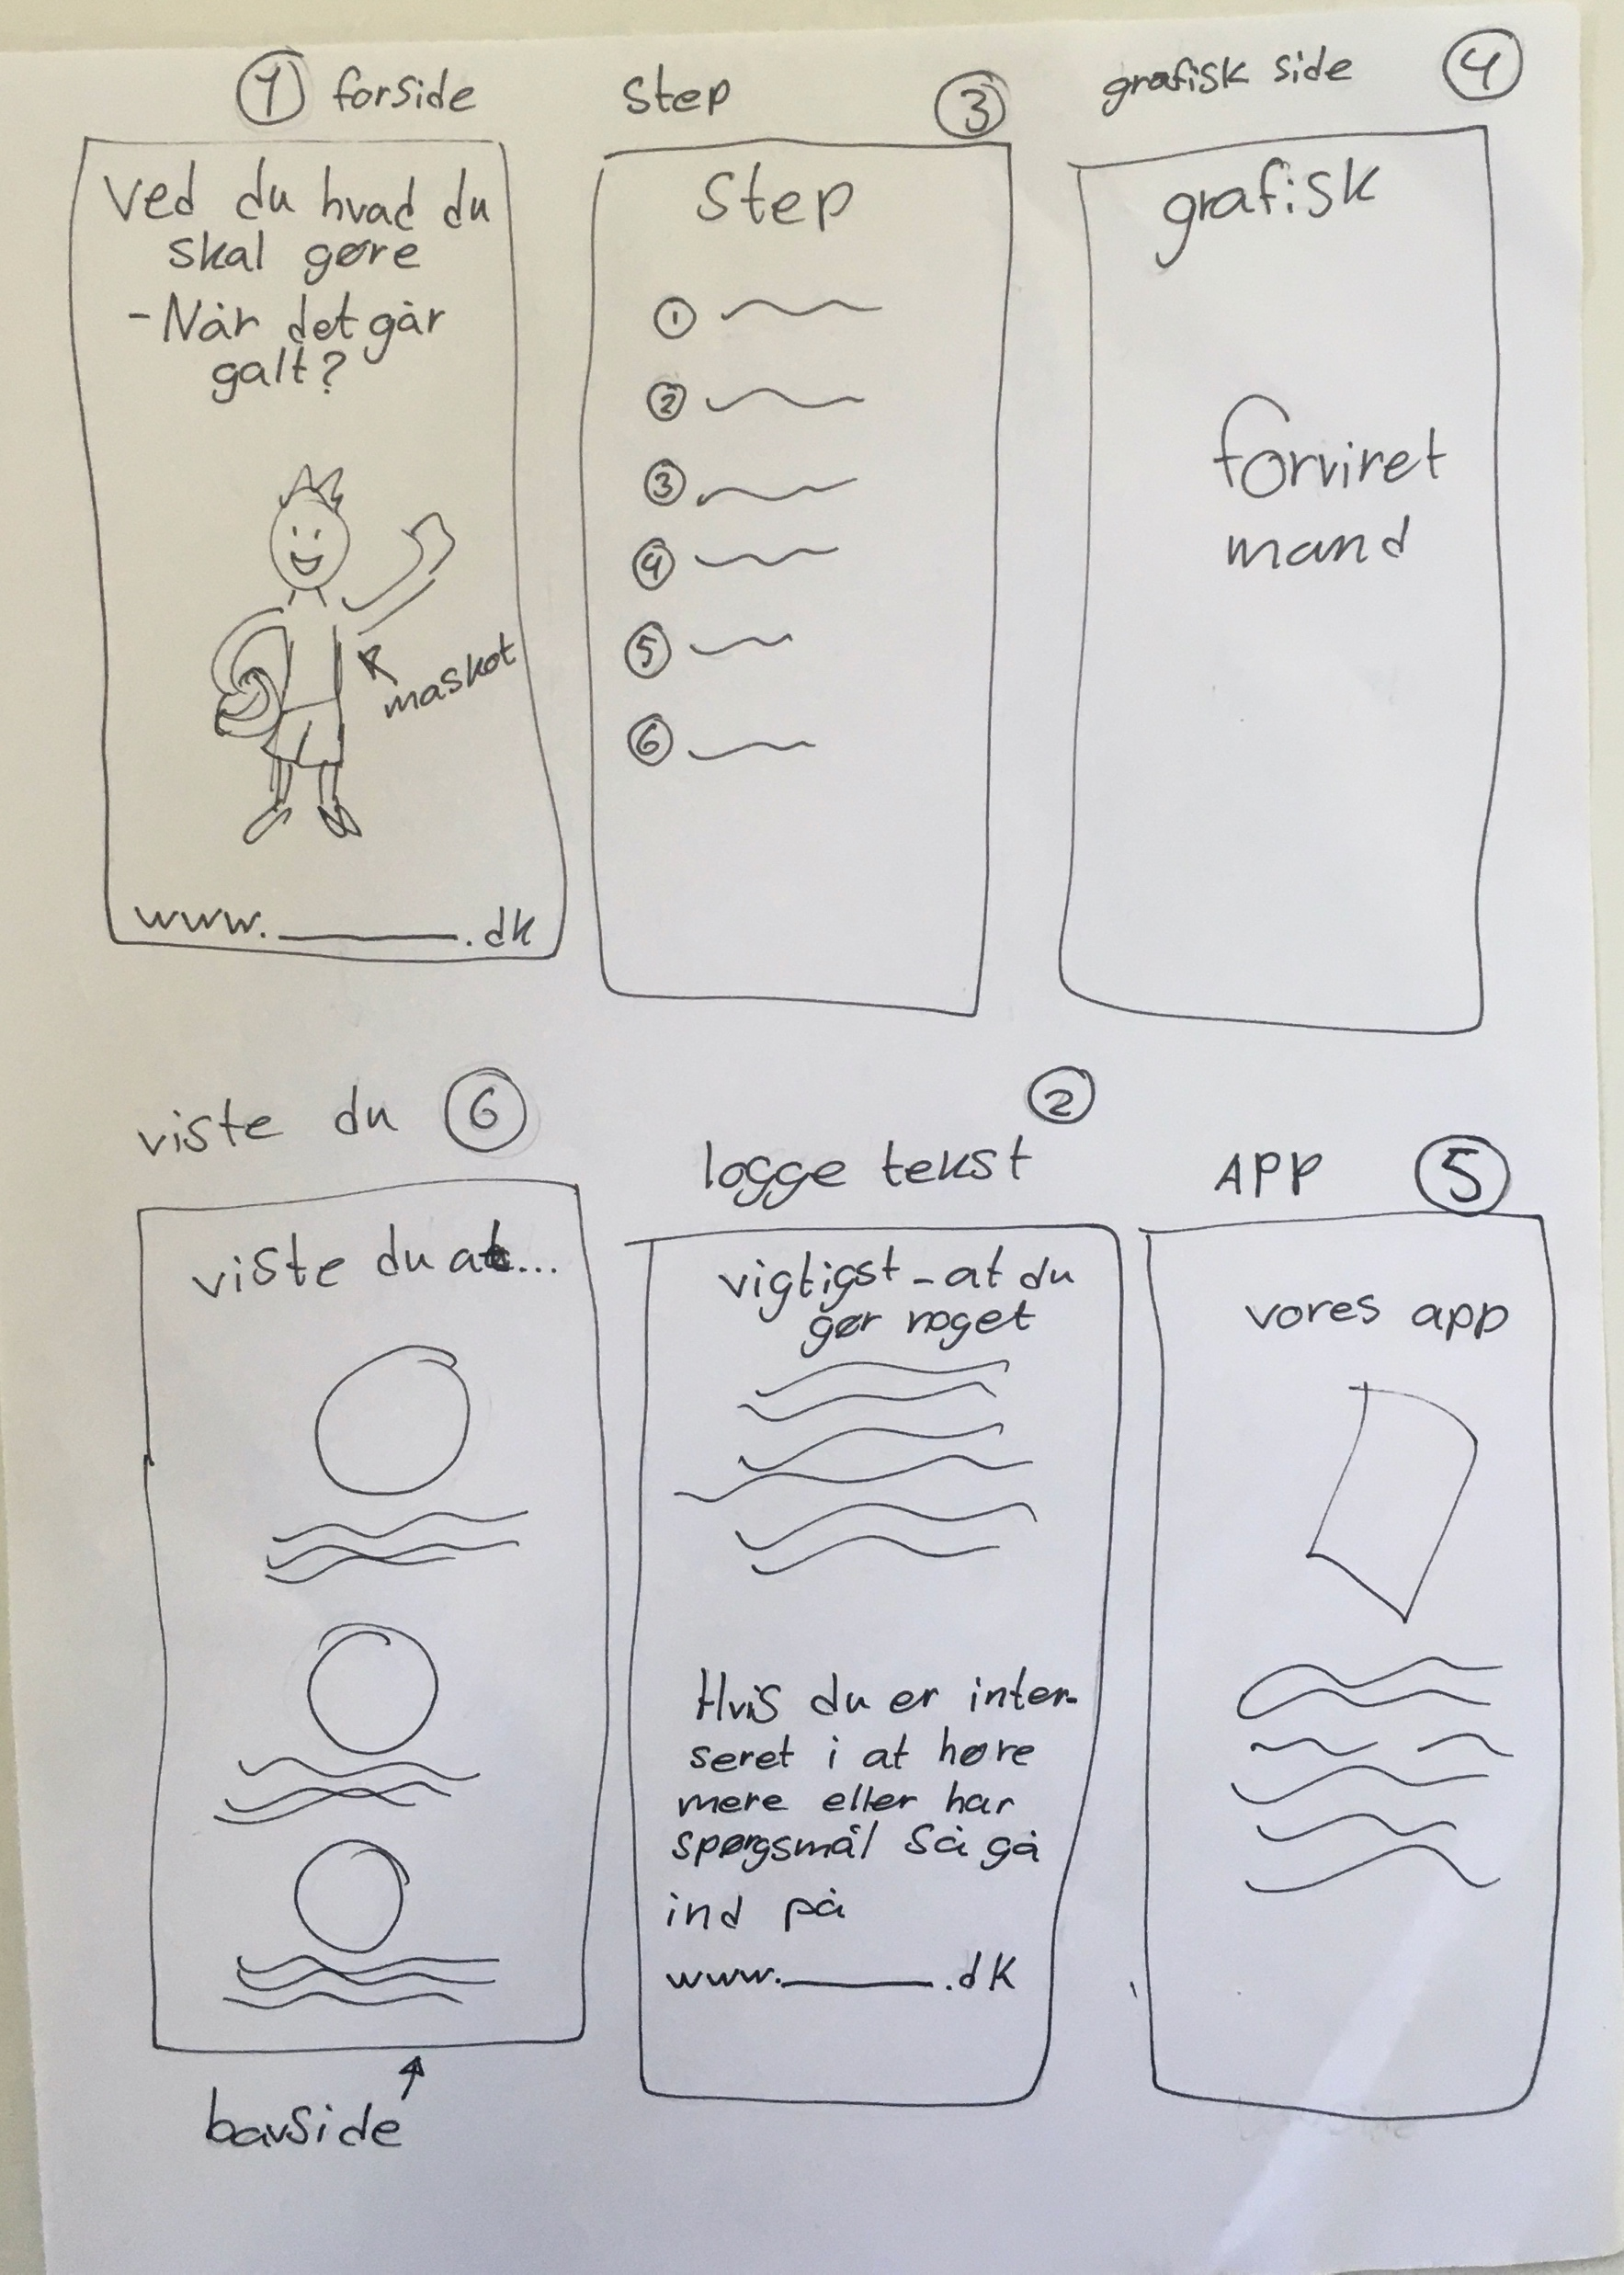 1 forside
ved du hvad du
skal gøre
- Når det går
galt?
maskot
www.______.dk
Step 3
Step
1
2
3
4
5
6
grafisk side 4
grafisk
forviret
mand
viste du 6
viste du at...
bavside
2
logge tekst
vigtigst - at du
gør noget
Hvis du er inter-
seret i at høre
mere eller har
spørgsmål så gå
ind på
www.______.dk
APP 5
vores app